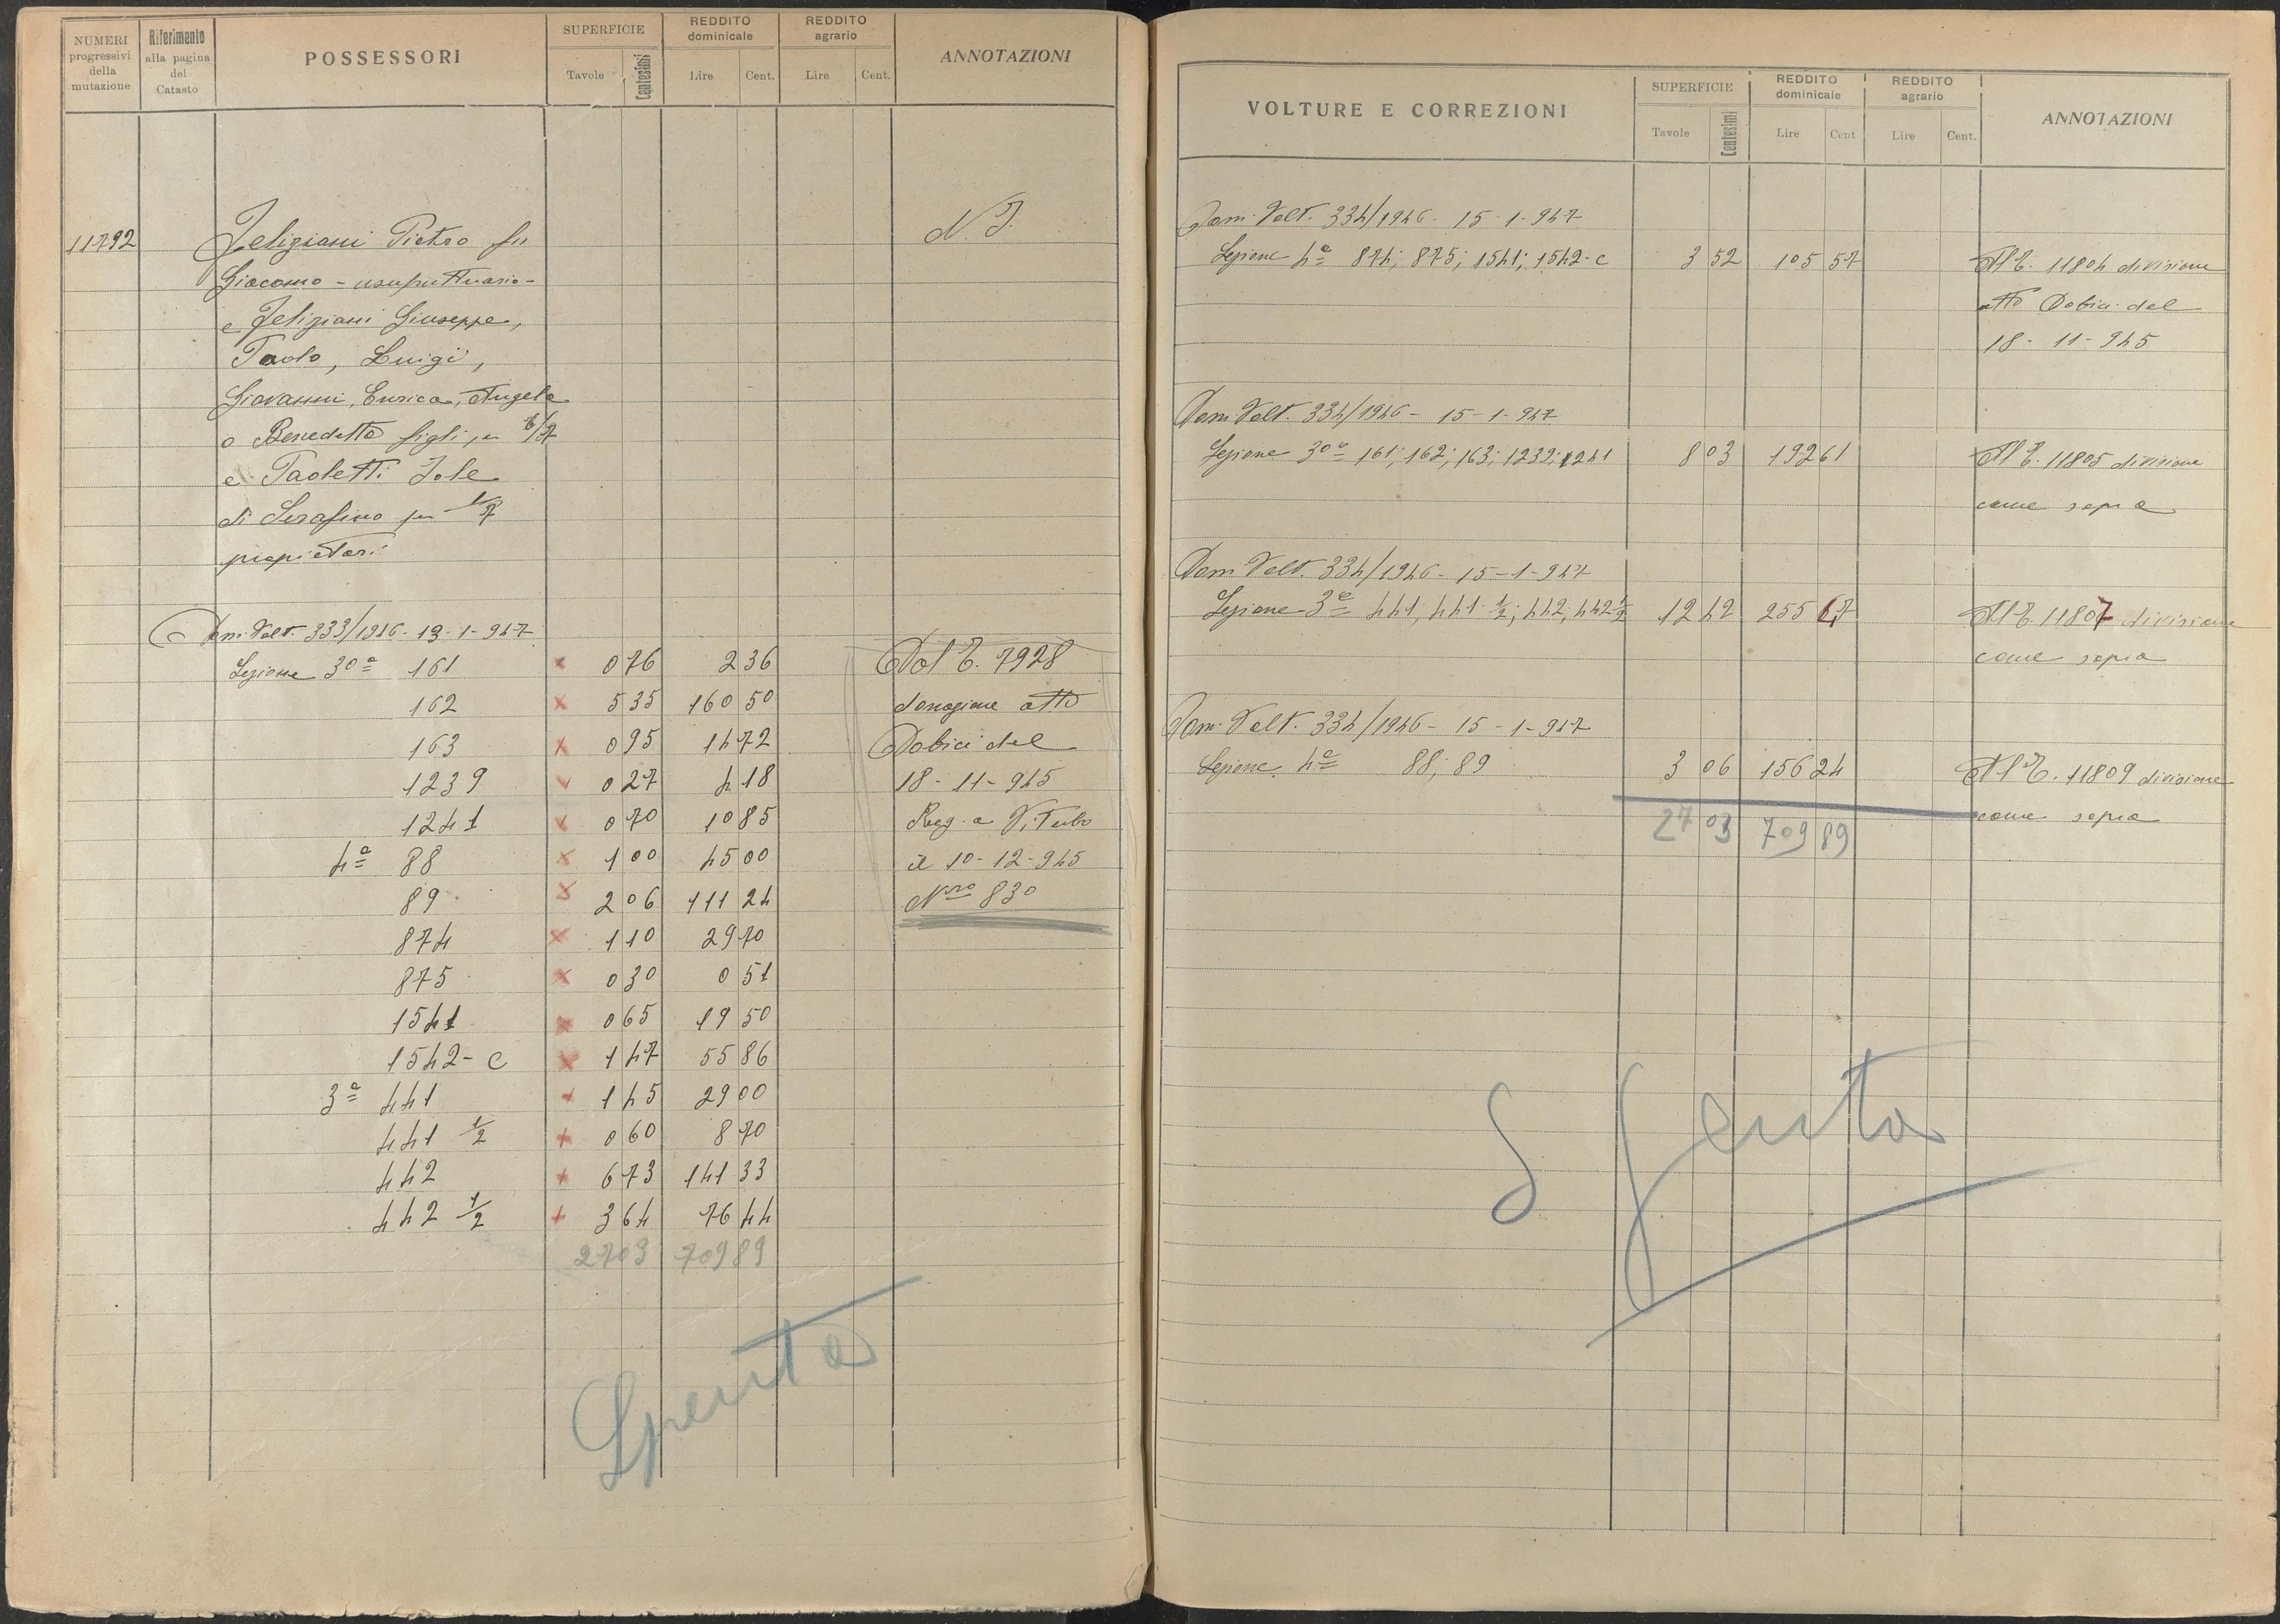 NUMERI progressivi della mutazione | Riferimento alla pagina del Catasto | POSSESSORI | SUPERFICIE Tavole Centesimi | REDDITO dominicale Lire Cent. | REDDITO agrario Lire Cent. | ANNOTAZIONI
11792 Feliziani Pietro fu N. I.
Giacomo - usufruttuario -
e Feliziani Giuseppe,
Paolo, Luigi,
Giovanni, Enrica, Angela
o Benedetta figli per 6/7
e Paoletti Iole
di Serafino per 1/7
proprietari
Dom. Volt. 333/1946 - 13-1-947
Sezione 30ª 161 × 0 76 2 36 Dal E. 7928
162 × 5 35 160 50 donazione atto
163 × 0 95 14 72 Dobici del
1239 × 0 27 4 18 18-11-945
1241 × 0 70 10 85 Reg. a Viterbo
4ª 88 × 1 00 45 00 il 10-12-945
89 × 2 06 111 24 Nro 830
874 × 1 10 29 70
875 × 0 30 0 51
1541 × 0 65 19 50
1542-c × 1 47 55 86
3ª 441 × 1 45 29 00
441 1/2 × 0 60 8 70
442 × 6 73 141 33
442 1/2 × 3 64 76 44
27 03 709 89
Spenta
VOLTURE E CORREZIONI | SUPERFICIE Tavole Centesimi | REDDITO dominicale Lire Cent. | REDDITO agrario Lire Cent. | ANNOTAZIONI
Dom. Volt. 334/1946 - 15-1-947
Sezione 4ª 874; 875; 1541; 1542-c 3 52 105 57 Al E. 11804 divisione
atto Dobici del
18-11-945
Dom. Volt. 334/1946 - 15-1-947
Sezione 30ª 161; 162; 163; 1239; 1241 8 03 192 61 Al E. 11805 divisione
come sopra
Dom. Volt. 334/1946 - 15-1-947
Sezione 3ª 441; 441 1/2; 442; 442 1/2 12 42 255 67 Al E. 11807 divisione
come sopra
Dom. Volt. 334/1946 - 15-1-947
Sezione 4ª 88; 89 3 06 156 24 Al E. 11809 divisione
27 03 709 89 come sopra
Spenta